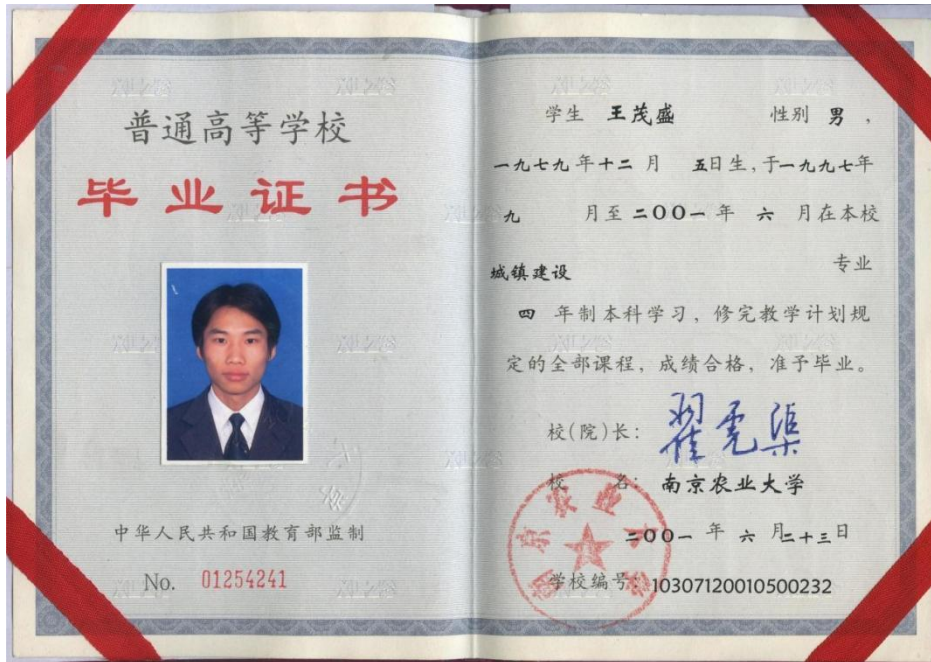 普通高等学校
毕业证书
中华人民共和国教育部监制
No. 01254241
学生 王茂盛 性别 男，
一九七九年十二月 五日生，于一九九七年
九 月至二〇〇一年 六 月在本校
城镇建设 专业
四 年制本科学习，修完教学计划规
定的全部课程，成绩合格，准予毕业。
校(院)长：翟虎渠
校 名：南京农业大学
二〇〇一 年 六 月二十三日
学校编号：10307120010500232
南京农业大学